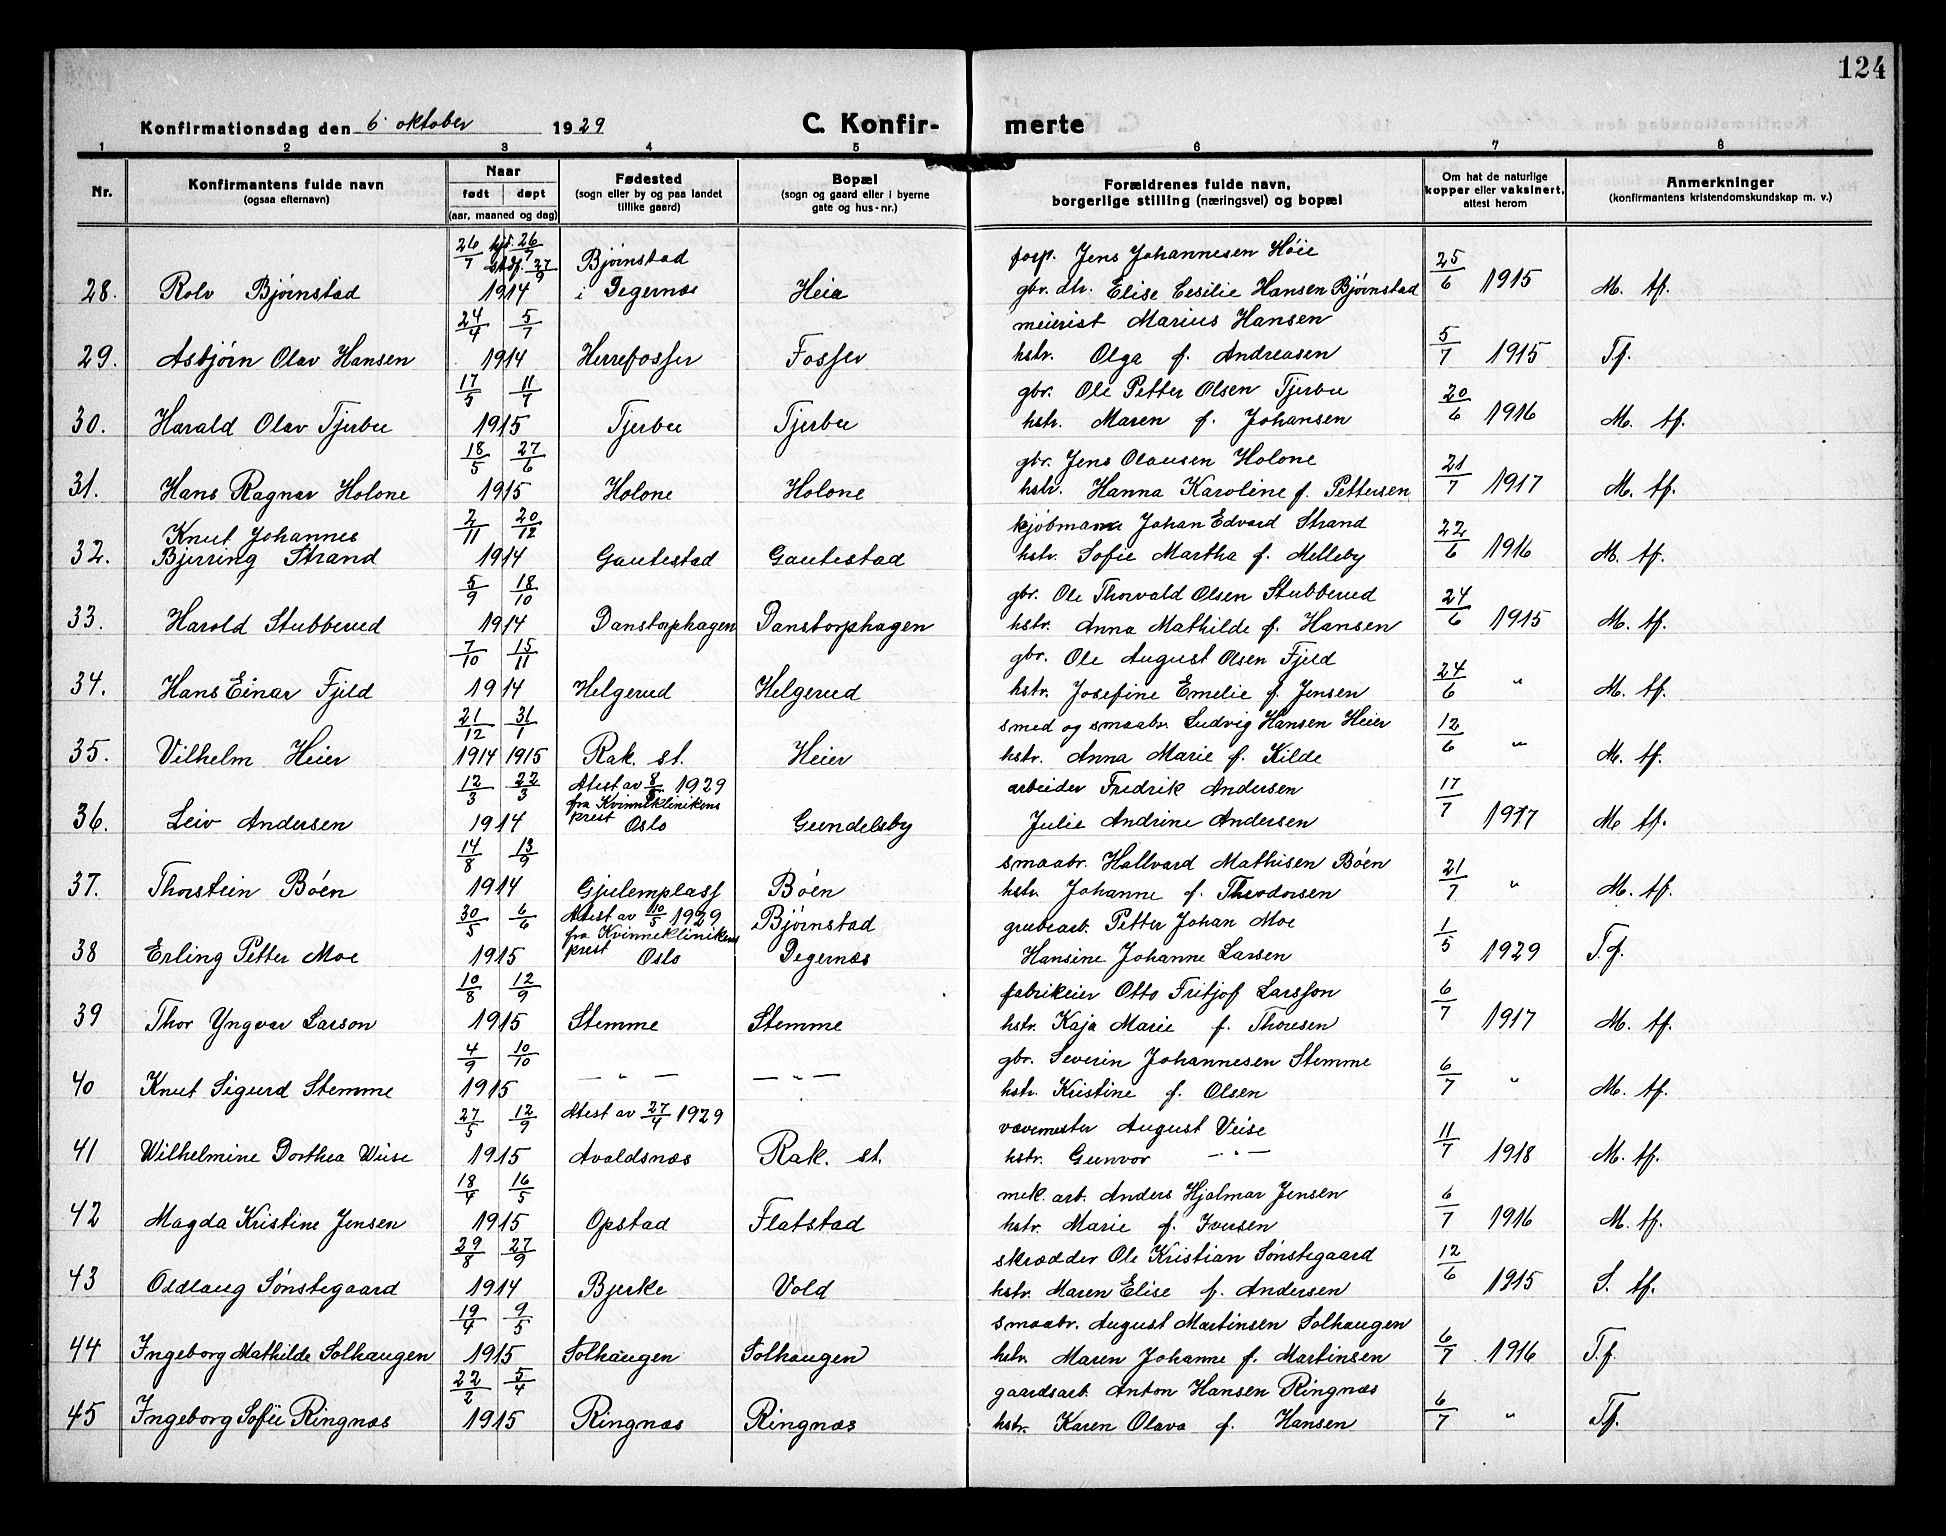 124
Konfirmationsdag den 6' oktober 1929 C. Konfir- merte
1 2 3 4 5 6 7 8
Nr. Konfirmantens fulde navn (ogsaa efternavn) Naar født døpt (aar, maaned og dag) Fødested (sogn eller by og paa landet tillike gaard) Bopæl (sogn og gaard eller i byerne gate og hus-nr.) Forældrenes fulde navn, borgerlige stilling (næringsvei) og bopæl Om hat de naturlige kopper eller vaksinert, attest herom Anmerkninger (konfirmantens kristendomskundskap m. v.)
26/7 hjd. 26/7 Bjørnstad forp. Jens Johannesen Høie 25/6
stadf. 27/9
28. Rolv Bjørnstad 1914 i Degernæs Heia gbr. dtr. Elise Cesilie Hansen Bjørnstad 1915 M. tf.
24/4 5/7 meierist Marius Hansen 5/7
29. Asbjørn Olav Hansen 1914 Herrefosser Fosser hstr. Olga f. Andreasen 1915 T.f.
17/5 11/7 gbr. Ole Petter Olsen Tjerbu 20/6
30. Harald Olav Tjerbu 1915 Tjerbu Tjerbu hstr. Maren f. Johansen 1916 M. tf.
18/5 27/6 gbr. Jens Olausen Holone 21/7
31. Hans Ragnar Holone 1915 Holone Holone hstr. Hanna Karoline f. Pettersen 1917 M. tf.
Knut Johannes 2/11 20/12 kjøbmann Johan Edvard Strand 22/6
32. Bjerring Strand 1914 Gautestad Gautestad hstr. Sofie Martha f. Melleby 1916 M. tf.
5/9 18/10 gbr. Ole Thorvald Olsen Stubberud 24/6
33. Harold Stubberud 1914 Danstorphagen Danstorphagen hstr. Anna Mathilde f. Hansen 1915 M. tf.
7/10 15/11 gbr. Ole August Olsen Fjeld 24/6
34. Hans Einar Fjeld 1914 Helgerud Helgerud hstr. Josefine Emelie f. Jensen " M. tf.
21/12 31/1 smed og smaabr. Ludvig Hansen Heier 12/6
35. Vilhelm Heier 1914 1915 Rak. st. Heier hstr. Anna Marie f. Kilde " M. tf.
12/3 22/3 Atest av 8/5 1929 arbeider Fredrik Andersen 17/7
fra Kvinneklinikens
36. Leiv Andersen 1914 prest Oslo Gundelsby Julie Andrine Andersen 1917 M. tf.
14/8 13/9 smaabr. Hallvard Mathisen Bøen 21/7
37. Thorstein Bøen 1914 Gjulemplass Bøen hstr. Johanne f. Theodorsen " M. tf.
30/5 6/6 Atest av 10/5 1929 Bjørnstad grubearb. Petter Johan Moe 1/5
fra Kvinneklinikens
38 Erling Petter Moe 1915 prest Oslo Degernæs Hansine Johanne Larsen 1929 T.f.
10/8 12/9 fabrikeier Otto Fritjof Larsson 6/7
39 Thor Yngvar Larson 1915 Stemme Stemme hstr. Kaja Marie f. Thoresen 1917 M. tf.
4/9 10/10 — " — — " — gbr. Severin Johannesen Stemme 6/7
40 Knut Sigurd Stemme 1915 hstr. Kristine f. Olsen " M. tf.
27/5 12/9 Atest av 27/4 1929 vævemester August Veise 11/7
41 Wilhelmine Dorthea Wiise 1915 Avaldsnæs Rak. st. hstr. Gunvor — " — 1918 M. tf.
18/4 16/5 mek. arb. Anders Hjalmar Jensen 6/7
42 Magda Kristine Jensen 1915 Opstad Flatstad hstr. Marie f. Iversen 1916 M. tf.
29/8 27/9 skrædder Ole Kristian Sønstegaard 12/6
43 Oddlaug Sønstegaard 1914 Bjerke Vold hstr. Maren Elise f. Andersen 1915 S. tf.
19/4 9/5 smaabr. August Martinsen Solhaugen 6/7
44 Ingeborg Mathilde Solhaugen 1915 Solhaugen Solhaugen hstr. Maren Johanne f. Martinsen 1916 T.f.
22/2 5/4 gaardsarb. Anton Hansen Ringnæs 6/7
45 Ingeborg Sofie Ringnæs 1915 Ringnæs Ringnæs hstr. Karen Olava f. Hansen " Tf.